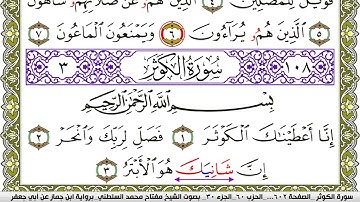 فَوَيْلٌ لِّلْمُصَلِّينَ ٤ الَّذِينَ هُمُۥ عَن صَلَاتِهِمُۥ سَاهُونَ
٥ الَّذِينَ هُمُۥ يُرَآءُونَ ٦ وَيَمْنَعُونَ الْمَاعُونَ ٧
١٠٨ سُورَةُ الْكَوْثَرِ ٣
بِسْمِ اللَّهِ الرَّحْمَٰنِ الرَّحِيمِ
إِنَّا أَعْطَيْنَٰكَ الْكَوْثَرَ ١ فَصَلِّ لِرَبِّكَ وَانْحَرْ ٢
إِنَّ شَانِيَكَ هُوَ الْأَبْتَرُ ٣
سورة الكوثر الصفحة ٦٠٢... الحزب ٦٠ الجزء ٣٠ بصوت الشيخ مفتاح محمد السلطني برواية ابن جماز عن ابي جعفر